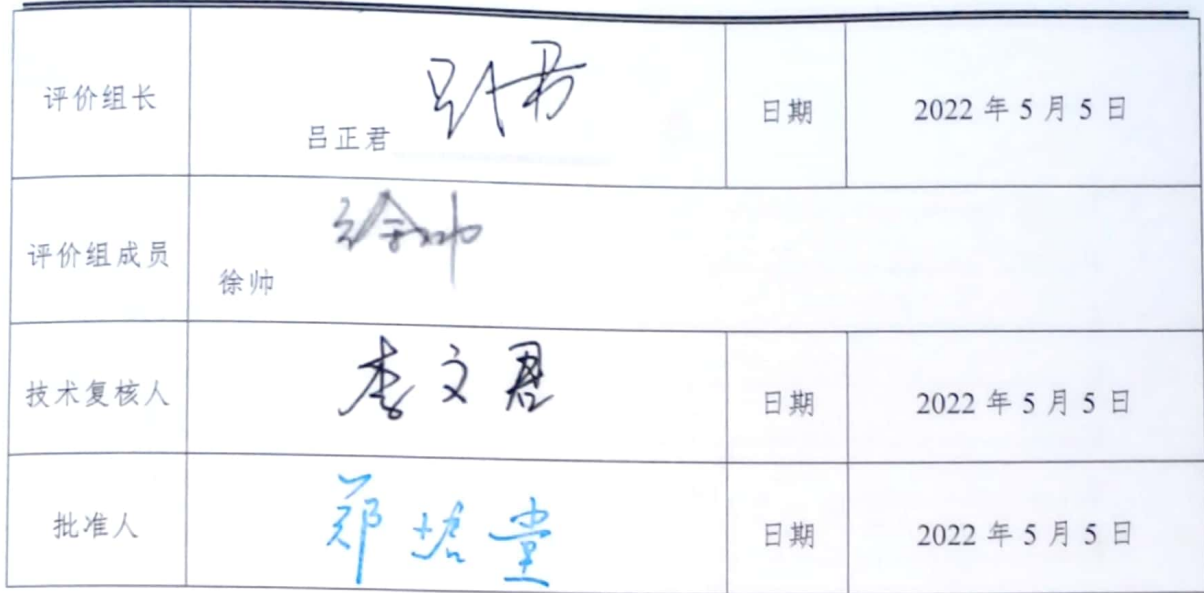 评价组长 吕正君 日期 2022 年 5 月 5 日
评价组成员 徐帅 徐帅
技术复核人 李文君 日期 2022 年 5 月 5 日
批准人 郑培堂 日期 2022 年 5 月 5 日